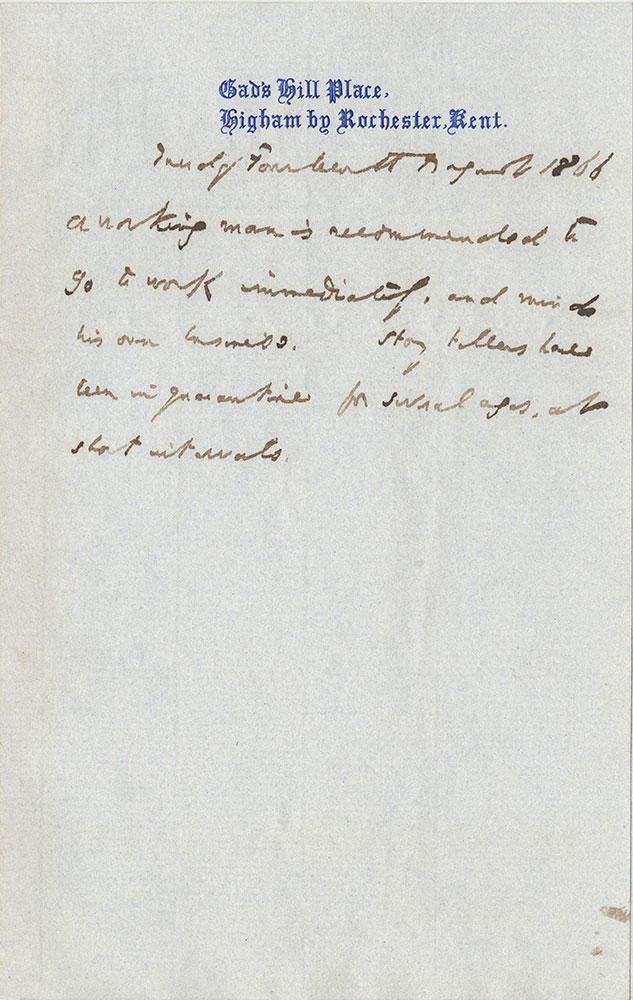 Gad's Hill Place,
Higham by Rochester, Kent.
Tuesday Fourteenth August 1866
A working man is recommended to
go to work immediately, and mind
his own business. Story tellers have
been in quarantine for several ages, at
short intervals.